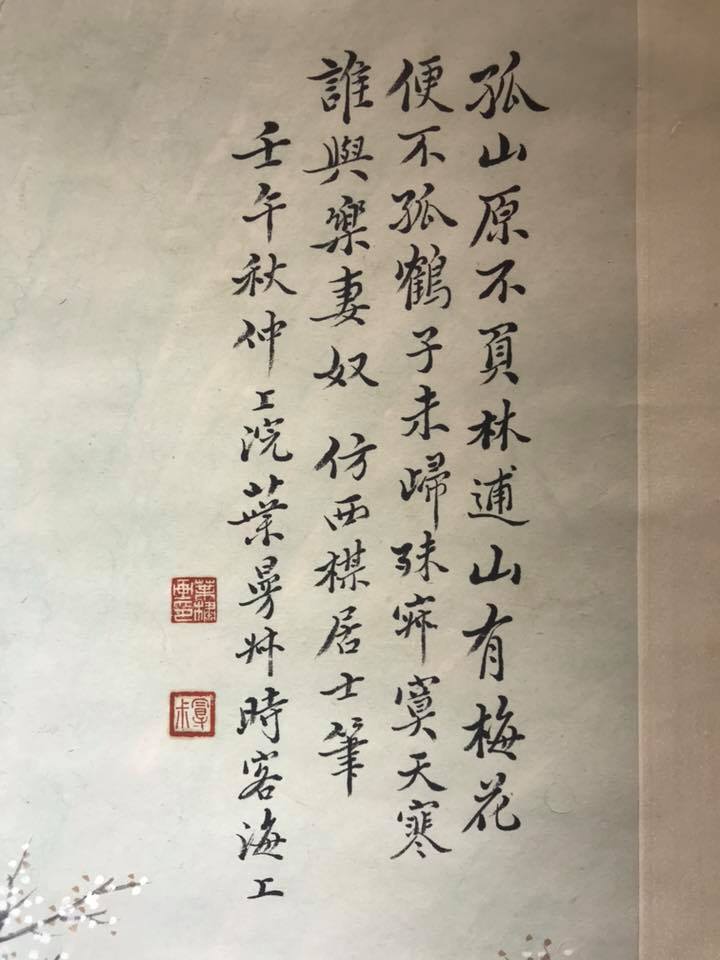 孤山原不負林逋山有梅花
便不孤鶴子未歸殊寂寞天寒
誰與樂妻奴 仿西楳居士筆
壬午秋仲上浣葉曼叔時客海上